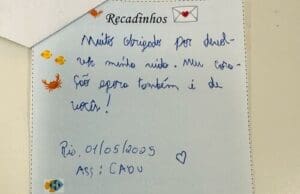 Recadinhos
Muito obrigado por devol-
ver minha vida. Meu cora-
ção agora também é de
vocês!
Rio, 01/05/2025
Ass: CADU